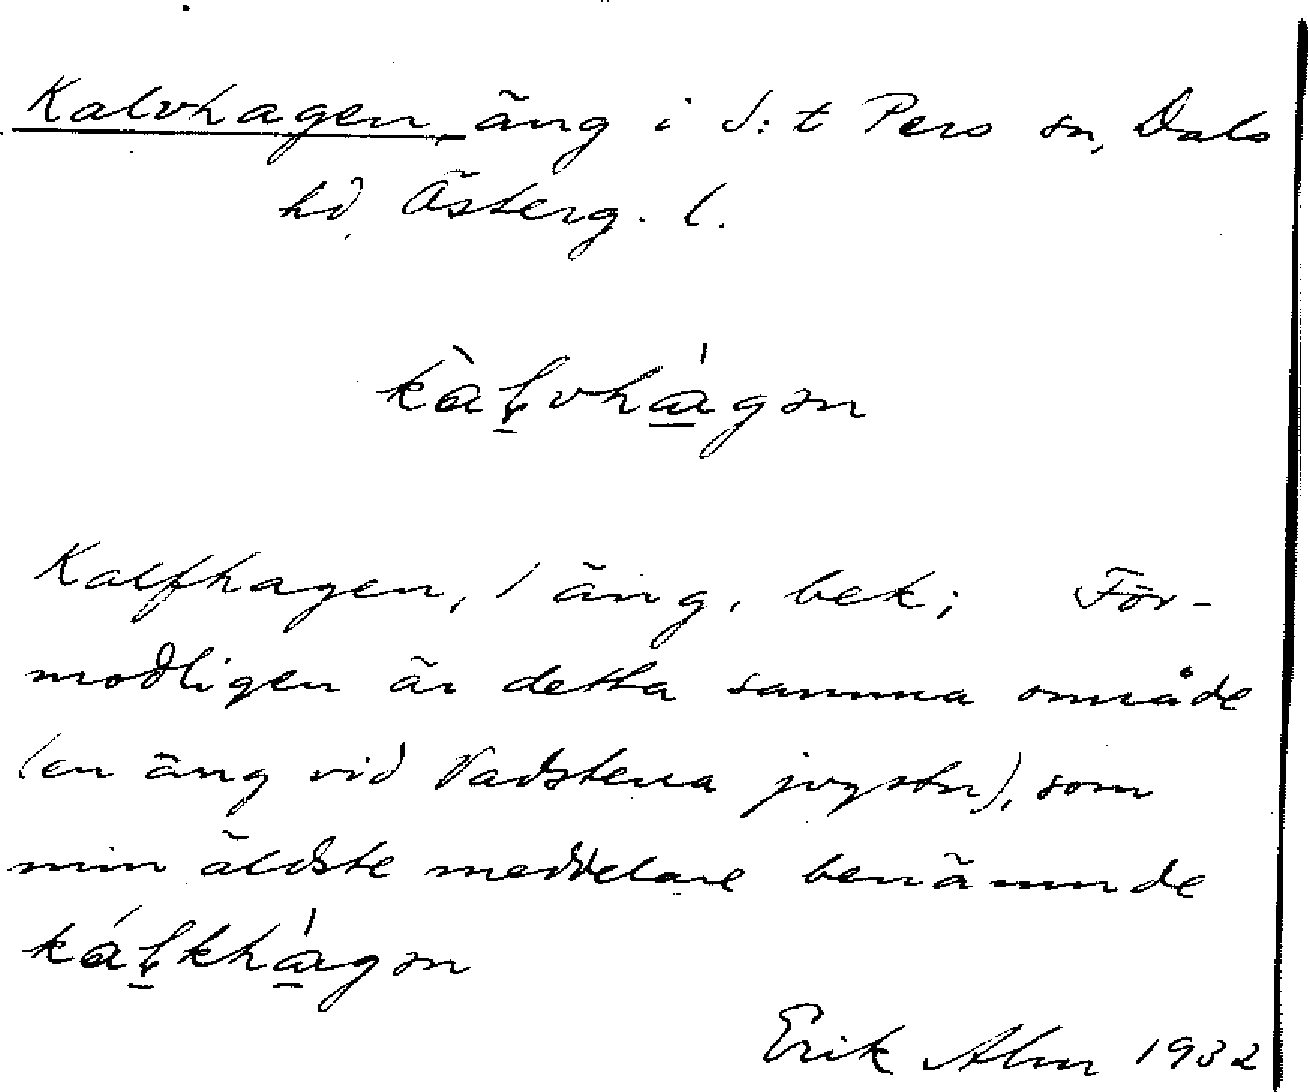 Kalvhagen, äng i S:t Pers sn, Dals
hd, Österg. l.
kàḷvhágən
Kalfhagen, 1 äng, bek; För-
modligen är detta samma område
(en äng vid Vadstena jvgstn), som
min äldste meddelare benämnde
káḷkhágən
Erik Alm 1932